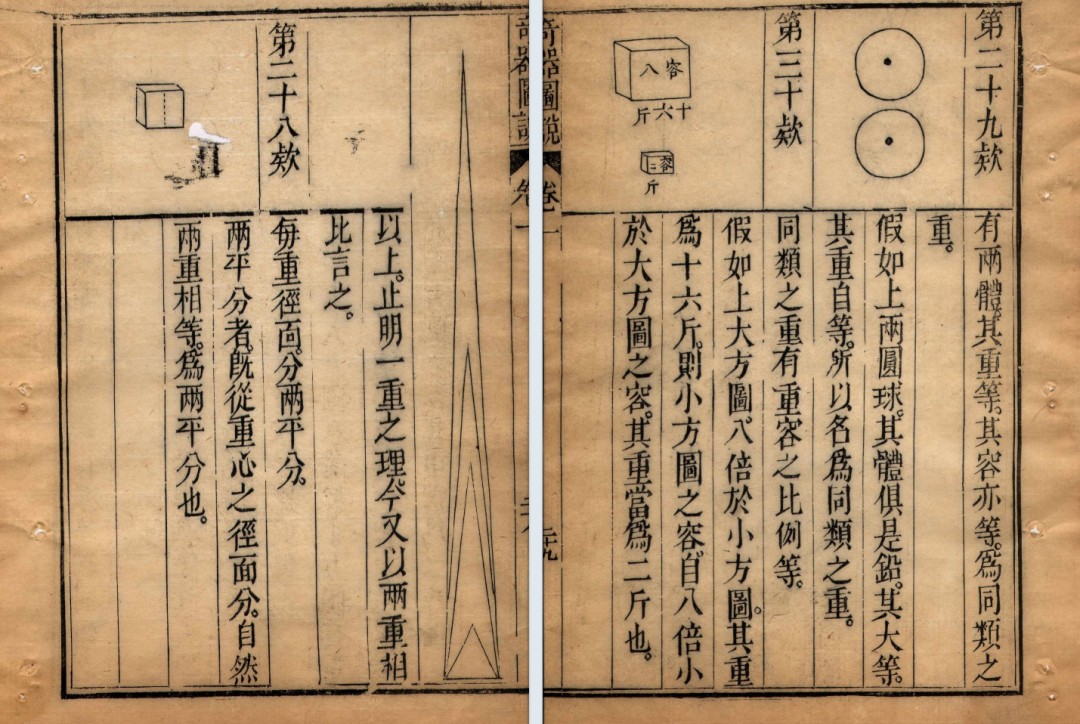 奇器圖說 卷一
以上。止明一重之理。今又以兩重相
比言之。
第二十八欵
每重徑面。分兩平分。
兩平分者。既從重心之徑面分。自然
兩重相等。爲兩平分也。
第二十九欵
有兩體。其重等。其容亦等。爲同類之
重。
假如上兩圓球。其體俱是鉛。其大等。
其重自等。所以名爲同類之重。
第三十欵
同類之重有重容之比例等。
容八
十六斤
容二
斤
假如上大方圖。八倍於小方圖。其重
爲十六斤。則小方圖之容。自八倍小
於大方圖之容。其重當爲二斤也。
奇器圖說 卷一